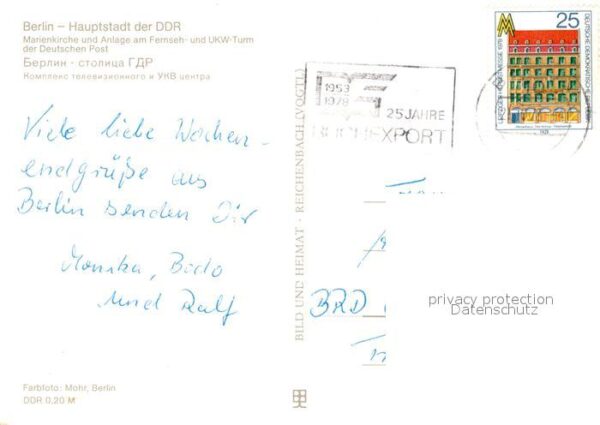 Berlin – Hauptstadt der DDR
Marienkirche und Anlage am Fernseh- und UKW-Turm
der Deutschen Post
Берлин · столица ГДР
Комплекс телевизионного и УКВ центра
Viele liebe Wochen-
endgrüße aus
Berlin senden Dir
Monika, Bodo
und Ralf
Farbfoto: Mohr, Berlin
DDR 0,20 M
BILD UND HEIMAT · REICHENBACH (VOGTL)
1953
1978
25 JAHRE
BUCHEXPORT
25
DEUTSCHE DEMOKRATISCHE
BRD
privacy protection
Datenschutz